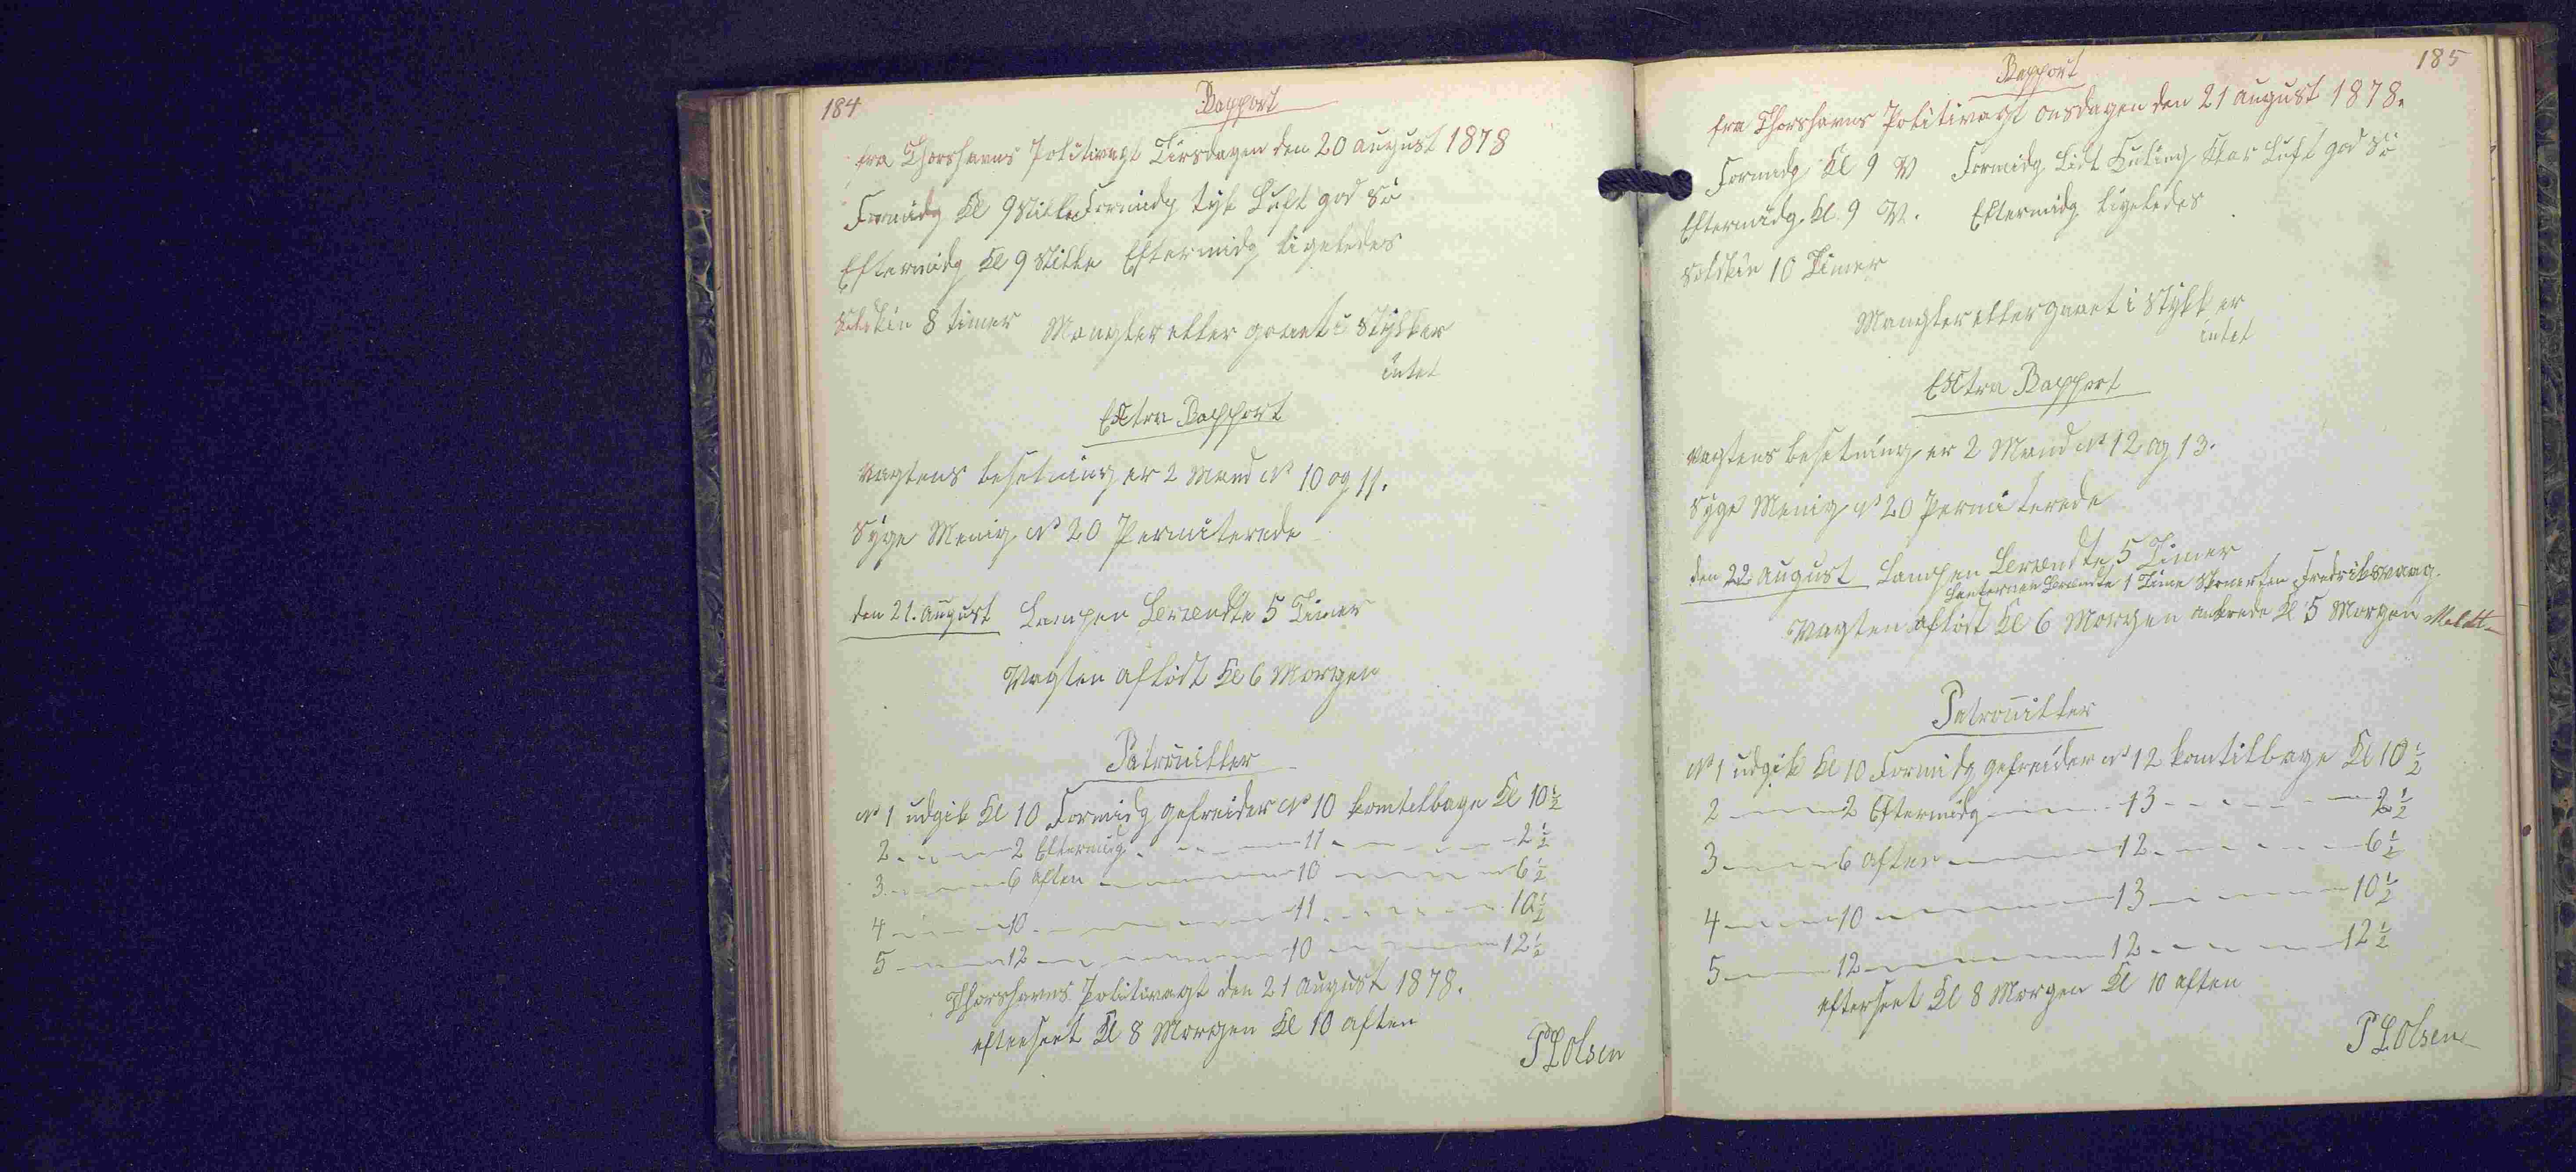 184
Rapport
fra Thorshavns Politivagt Tirsdagen den 20 august 1878
Formidg Kl 9 Stille Formidg tyk Luft god Sö
Eftermidg Kl 9 Stille Eftermidg ligeledes
Solskin 8 timer Mangler eller gaaet i Stykker
intet
Extra Rapport
Vagtens besetning er 2 Mand No 10 og 11.
Syge Menig No 20 Permiterede
den 21. August Lampen Brændte 5 Timer
Vagten aflöst Kl 6 Morgen
Patrouiller
No 1 udgik Kl 10 Formidg gefreider No 10 kom tilbage Kl 10 1/2
2 2 Eftermidg 11 2 1/2
3 6 Aften 10 6 1/2
4 10 11 10 1/2
5 12 10 12 1/2
Thorshavns Politivagt den 21 August 1878.
efterseet Kl 8 Morgen Kl 10 aften
P L Olsen
185
Rapport
fra Thorshavns Politivagt Onsdagen den 21 august 1878.
Formidg Kl 9 V Formidg Lidt Kuling Klar Luft god Sö
Eftermidg. Kl 9 V. Eftermidg ligeledes
Solskin 10 Timer
Mangler eller gaaet i Stykker
intet
Extra Rapport
Vagtens besetning er 2 Mand No 12 og 13.
Syge Menig No 20 Permiterede
den 22 August Lampen Brændte 5 Timer
Lanternen Brændte 1 Time Skonerten Fredriksvaag.
Vagten aflöst Kl 6 Morgen ankrede Kl 5 Morgen
Patrouiller
No 1 udgik Kl 10 Formidg gefreider No 12 kom tilbage Kl 10 1/2
2 2 Eftermidg 13 2 1/2
3 6 Aften 12 6 1/2
4 10 13 10 1/2
5 12 12 12 1/2
efterseet Kl 8 Morgen Kl 10 aften
P L Olsen